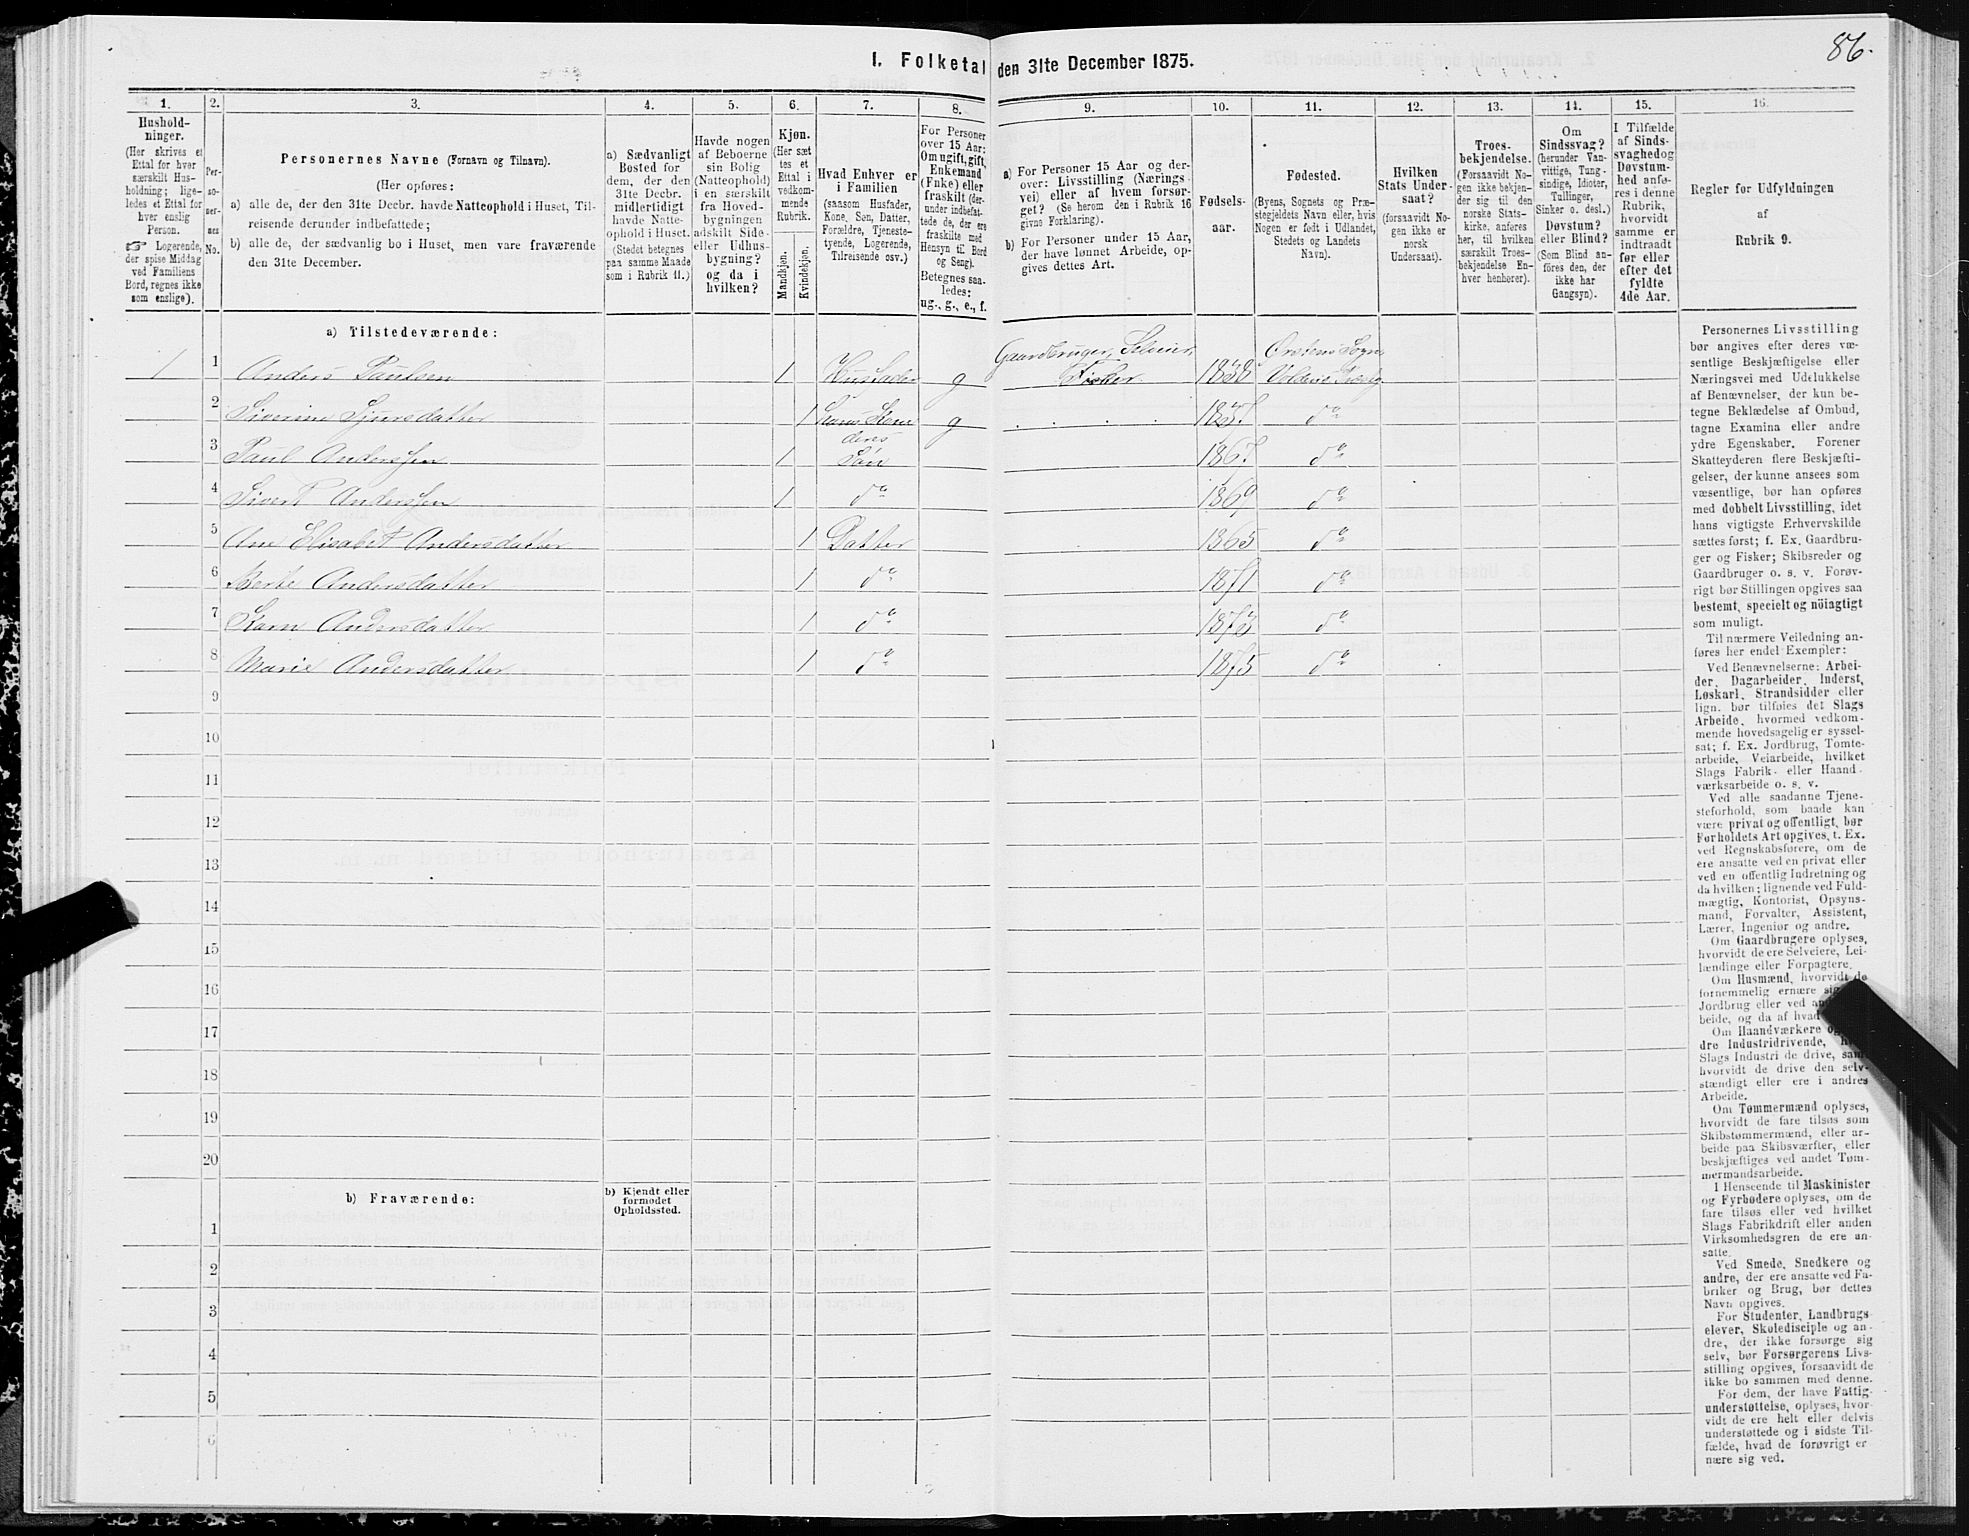 86.
1. Folketal den 31te December 1875.
1. 2. 3. 4. 5. 6. 7. 8. 9. 10. 11. 12. 13. 14. 15. 16.
Hushold-
ninger.
(Her skrives et
Ettal for hver
særskilt Hus-
holdning; lige-
ledes et Ettal for
hver enslig
Person.
☞ Logerende,
der spise Middag
ved Familiens
Bord, regnes ikke
som enslige).
Per-
so-
ner-
nes
No.
Personernes Navne (Fornavn og Tilnavn).
(Her opføres:
a) alle de, der den 31te Decbr. havde Natteophold i Huset, Til-
reisende derunder indbefattede;
b) alle de, der sædvanlig bo i Huset, men vare fraværende
den 31te December.
a) Sædvanligt
Bosted for
dem, der den
31te Decbr.
midlertidigt
havde Natte-
ophold i Huset.
(Stedet betegnes
paa samme Maade
som i Rubrik 11.)
Havde nogen
af Beboerne
sin Bolig
(Natteophold)
i en særskilt
fra Hoved-
bygningen
adskilt Side-
eller Udhus-
bygning?
og da i
hvilken?
Kjøn.
(Her sæt
tes et
Ettal i
vedkom-
mende
Rubrik.
Mandkjøn.
Kvindekjøn.
Hvad Enhver er
i Familien
(saasom Husfader,
Kone, Søn, Datter,
Forældre, Tjeneste-
tyende, Logerende,
Tilreisende osv.)
For Personer
over 15 Aar:
Om ugift, gift,
Enkemand
(Enke) eller
fraskilt (der-
under indbefat-
tede de, der ere
fraskilte med
Hensyn til Bord
og Seng).
Betegnes saa-
ledes:
ug., g., e., f.
a) For Personer 15 Aar og der-
over: Livsstilling (Nærings-
vei) eller af hvem forsør-
get? (Se herom den i Rubrik 16
givne Forklaring).
b) For Personer under 15 Aar,
der have lønnet Arbeide, op-
gives dettes Art.
Fødsels-
aar.
Fødested.
(Byens, Sognets og Præ-
stegjeldets Navn eller, hvis
Nogen er født i Udlandet,
Stedets og Landets
Navn).
Hvilken
Stats Under-
saat?
(forsaavidt No-
gen ikke er
norsk
Undersaat).
Troes-
bekjendelse.
(Forsaavidt No-
gen ikke bekjen-
der sig til den
norske Stats-
kirke, anføres
her, til hvilken
særskilt Troes-
bekjendelse En-
hver henhører).
Om
Sindssvag?
(herunder Van-
vittige, Tung-
sindige, Idioter,
Tullinger,
Sinker o. desl.)
Døvstum?
eller Blind?
(Som Blind an-
føres den, der
ikke har
Gangsyn).
I Tilfælde
af Sinds-
svaghed og
Døvstum-
hed anfø-
res i denne
Rubrik,
hvorvidt
samme er
indtraadt
før eller
efter det
fyldte
4de Aar.
Regler for Udfyldningen
af
Rubrik 9.
a) Tilstedeværende:
1 1 Anders Paulsen 1 Husfader g Gaardbruger, Selveier, Fisker. 1838 Ørstens Sogn Voldens Præstg
2 Siverine Sjursdatter 1 Hans Kone g 1837 do
deres
3 Paul Anderssen 1 Søn 1867 do
4 Sivert Anderssen 1 do 1869 do
5 Ane Elisabet Andersdatter 1 Datter 1865 do
6 Berte Andersdatter 1 do 1871 do
7 Karn Andersdatter 1 do 1873 do
8 Marie Andersdatter 1 do 1875 do
9
10
11
12
13
14
15
16
17
18
19
20
b) Fraværende:
b) Kjendt eller
formodet
Opholdssted.
1
2
3
4
5
6
Personernes Livsstilling
bør angives efter deres væ-
sentlige Beskjæftigelse eller
Næringsvei med Udelukkelse
af Benævnelser, der kun be-
tegne Beklædelse af Ombud,
tagne Examina eller andre
ydre Egenskaber. Forener
Skatteyderen flere Beskjæfti-
gelser, der kunne ansees som
væsentlige, bør han opføres
med dobbelt Livsstilling, idet
hans vigtigste Erhvervskilde
sættes først; f. Ex. Gaardbru-
ger og Fisker; Skibsreder og
Gaardbruger o. s. v. Forøv-
rigt bør Stillingen opgives saa
bestemt, specielt og nöiagtigt
som muligt.
Til nærmere Veiledning an-
føres her endel Exempler:
Ved Benævnelserne: Arbei-
der, Dagarbeider, Inderst,
Løskarl, Strandsidder eller
lign. bør tilføies det Slags
Arbeide, hvormed vedkom-
mende hovedsagelig er syssel-
sat; f. Ex. Jordbrug, Tomte-
arbeide, Veiarbeide, hvilket
Slags Fabrik- eller Haand-
værksarbeide o. s. v.
Ved alle saadanne Tjene-
steforhold, som baade kan
være privat og offentligt, bør
Forholdets Art opgives, t. Ex.
ved Regnskabsførere, om de
ere ansatte ved en privat eller
ved en offentlig Indretning og
da hvilken; lignende ved Fuld-
mægtig, Kontorist, Opsyns-
mand, Forvalter, Assistent,
Lærer, Ingeniør og andre.
Om Gaardbrugere oplyses,
hvorvidt de ere Selveiere, Lei-
lændinge eller Forpagtere.
Om Husmænd, hvorvidt de
fornemmelig ernære sig
Jordbrug eller ved
beide, og da af hvad
Om Haandværkere
dre Industridrivende,
Slags Industri de drive, samt
hvorvidt de drive den selv-
stændigt eller ere i andres
Arbeide.
Om Tømmermænd oplyses,
hvorvidt de fare tilsøs som
Skibstømmermænd, eller ar-
beide paa Skibsværfter, eller
beskjæftiges ved andet Tøm-
mermandsarbeide.
I Henseende til Maskinister
og Fyrbødere oplyses, om de
fare tilsøs eller ved hvilket
Slags Fabrikdrift eller anden
Virksomhedsgren de ere an-
satte.
Ved Smede, Snedkere og
andre, der ere ansatte ved Fa-
briker og Brug, bør dettes
Navn opgives.
For Studenter, Landbrugs-
elever, Skoledisciple og an-
dre, der ikke forsørge sig
selv, bør Forsørgerens Livs-
stilling opgives, forsaavidt de
ikke bo sammen med denne.
For dem, der have Fattig-
understøttelse, oplyses, hvor-
vidt de ere helt eller delvis
understøttede og i sidste Til-
fælde, hvad de forøvrigt er
nære sig ved.